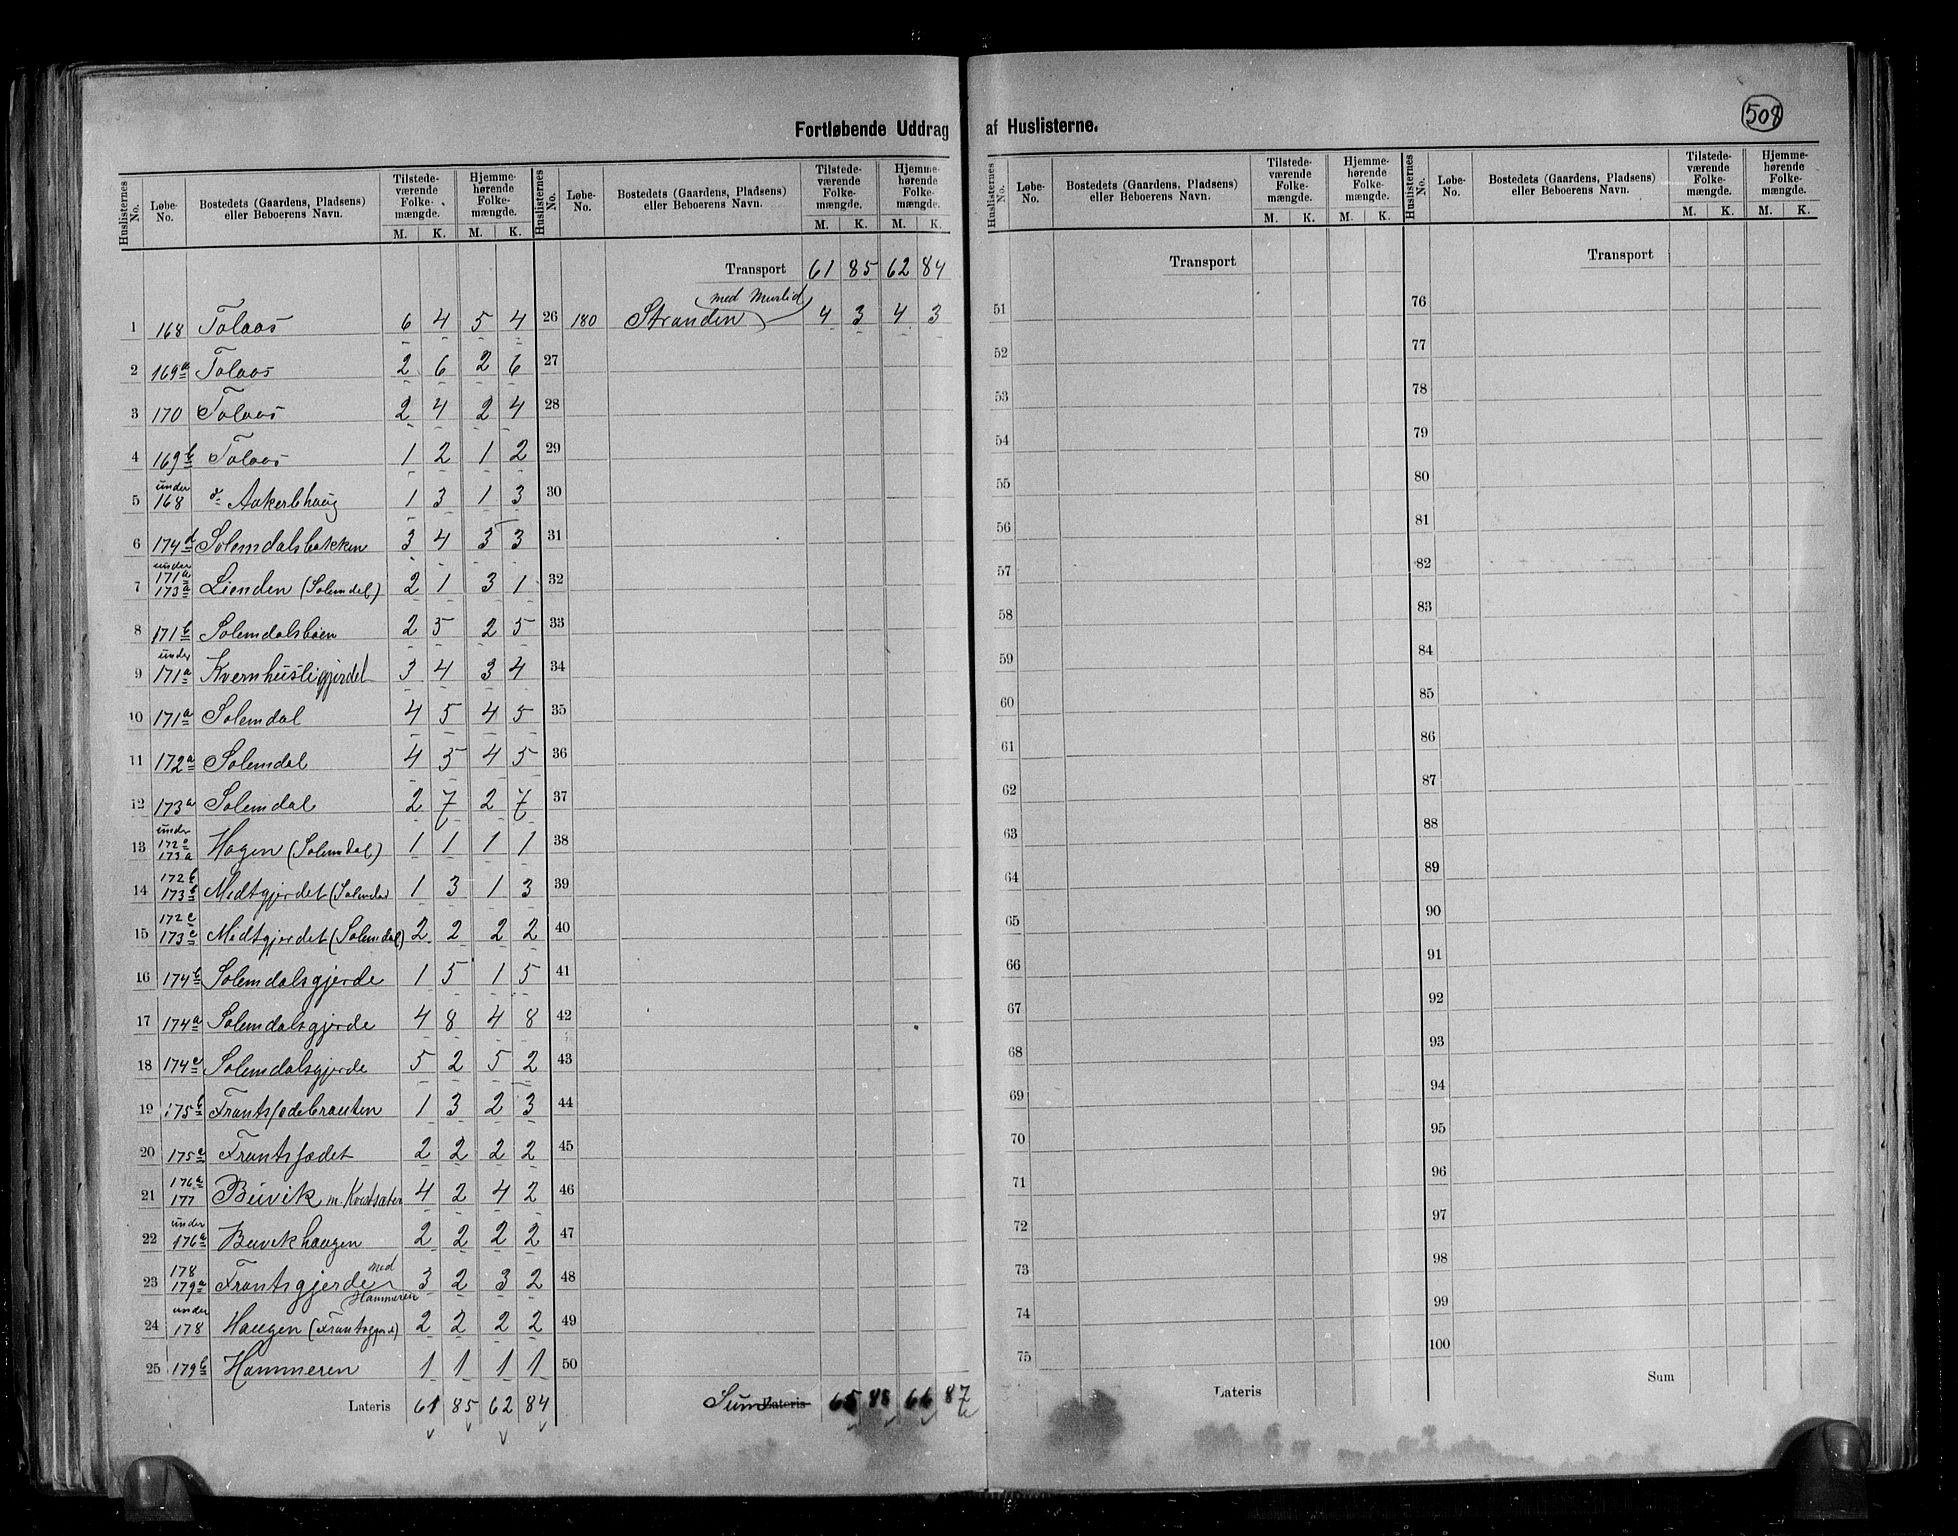 508
Fortløbende Uddrag af Huslisterne.
Huslisternes No. Løbe-No. Bostedets (Gaardens, Pladsens) eller Beboerens Navn. Tilstedeværende Folkemængde. M. K. Hjemmehørende Folkemængde. M. K.
Huslisternes No. Løbe-No. Bostedets (Gaardens, Pladsens) eller Beboerens Navn. Tilstedeværende Folkemængde. M. K. Hjemmehørende Folkemængde. M. K.
1 168 Tolaas 6 4 5 4
2 169a Tolaas 2 6 2 6
3 170 Tolaas 2 4 2 4
4 169b Tolaas 1 2 1 2
5 under 168 Aakerlhaug 1 3 1 3
6 174d Solemdalsbakken 3 4 3 3
7 under 171a 173a Lienden (Solemdal) 2 1 3 1
8 171b Solemdalsbøen 2 5 2 5
9 under 171a Kvernhusligjerdet 3 4 3 4
10 171a Solemdal 4 5 4 5
11 172a Solemdal 4 5 4 5
12 173a Solemdal 2 7 2 7
13 under 172a 173a Hagen (Solemdal) 1 1 1 1
14 172b 173b Medtgjerdet (Solemdal 1 3 1 3
15 172c 173c Medtgjerdet (Solemdal) 2 2 2 2
16 174b Solemdalsgjerde 1 5 1 5
17 174a Solemdalsgjerde 4 8 4 8
18 174c Solemdalsgjerde 5 2 5 2
19 175b Frantsfodebrauten 1 3 2 3
20 175c Frantsfodet 2 2 2 2
21 176a 177 Buvik m. Kvistsæter 4 2 4 2
22 under 176a Buvikhaugen 2 2 2 2
23 178 179a Frantsgjerde med Hammeren 3 2 3 2
24 under 178 Haugen (Frantsgjerde) 2 2 2 2
25 179b Hammeren 1 1 1 1
Lateris 61 85 62 84
Transport 61 85 62 84
26 180 Stranden med Murlid 4 3 4 3
27
28
29
30
31
32
33
34
35
36
37
38
39
40
41
42
43
44
45
46
47
48
49
50
Sum Lateris 65 88 66 87
Huslisternes No. Løbe-No. Bostedets (Gaardens, Pladsens) eller Beboerens Navn. Tilstedeværende Folkemængde. M. K. Hjemmehørende Folkemængde. M. K.
Huslisternes No. Løbe-No. Bostedets (Gaardens, Pladsens) eller Beboerens Navn. Tilstedeværende Folkemængde. M. K. Hjemmehørende Folkemængde. M. K.
Transport
51
52
53
54
55
56
57
58
59
60
61
62
63
64
65
66
67
68
69
70
71
72
73
74
75
Lateris
Transport
76
77
78
79
80
81
82
83
84
85
86
87
88
89
90
91
92
93
94
95
96
97
98
99
100
Sum